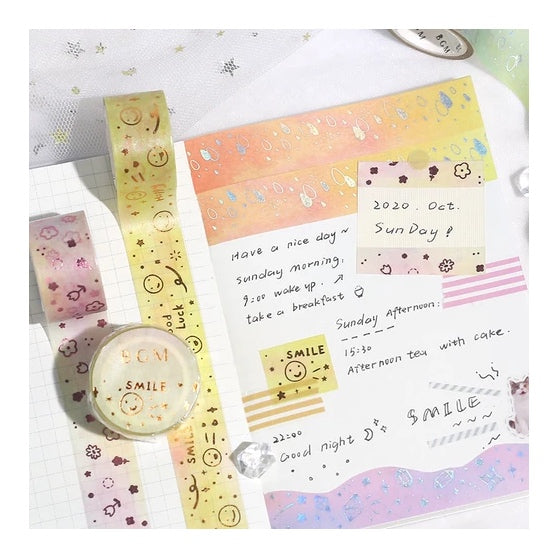 BGM
2020. Oct.
SunDay!
Have a nice day~
sunday morning.
9:00 wake up.
take a breakfast
Sunday Afternoon:
15:30
Afternoon tea with cake.
SMILE
SMILE
22:00
Good night
Luck
BGM
SMILE
SMILE